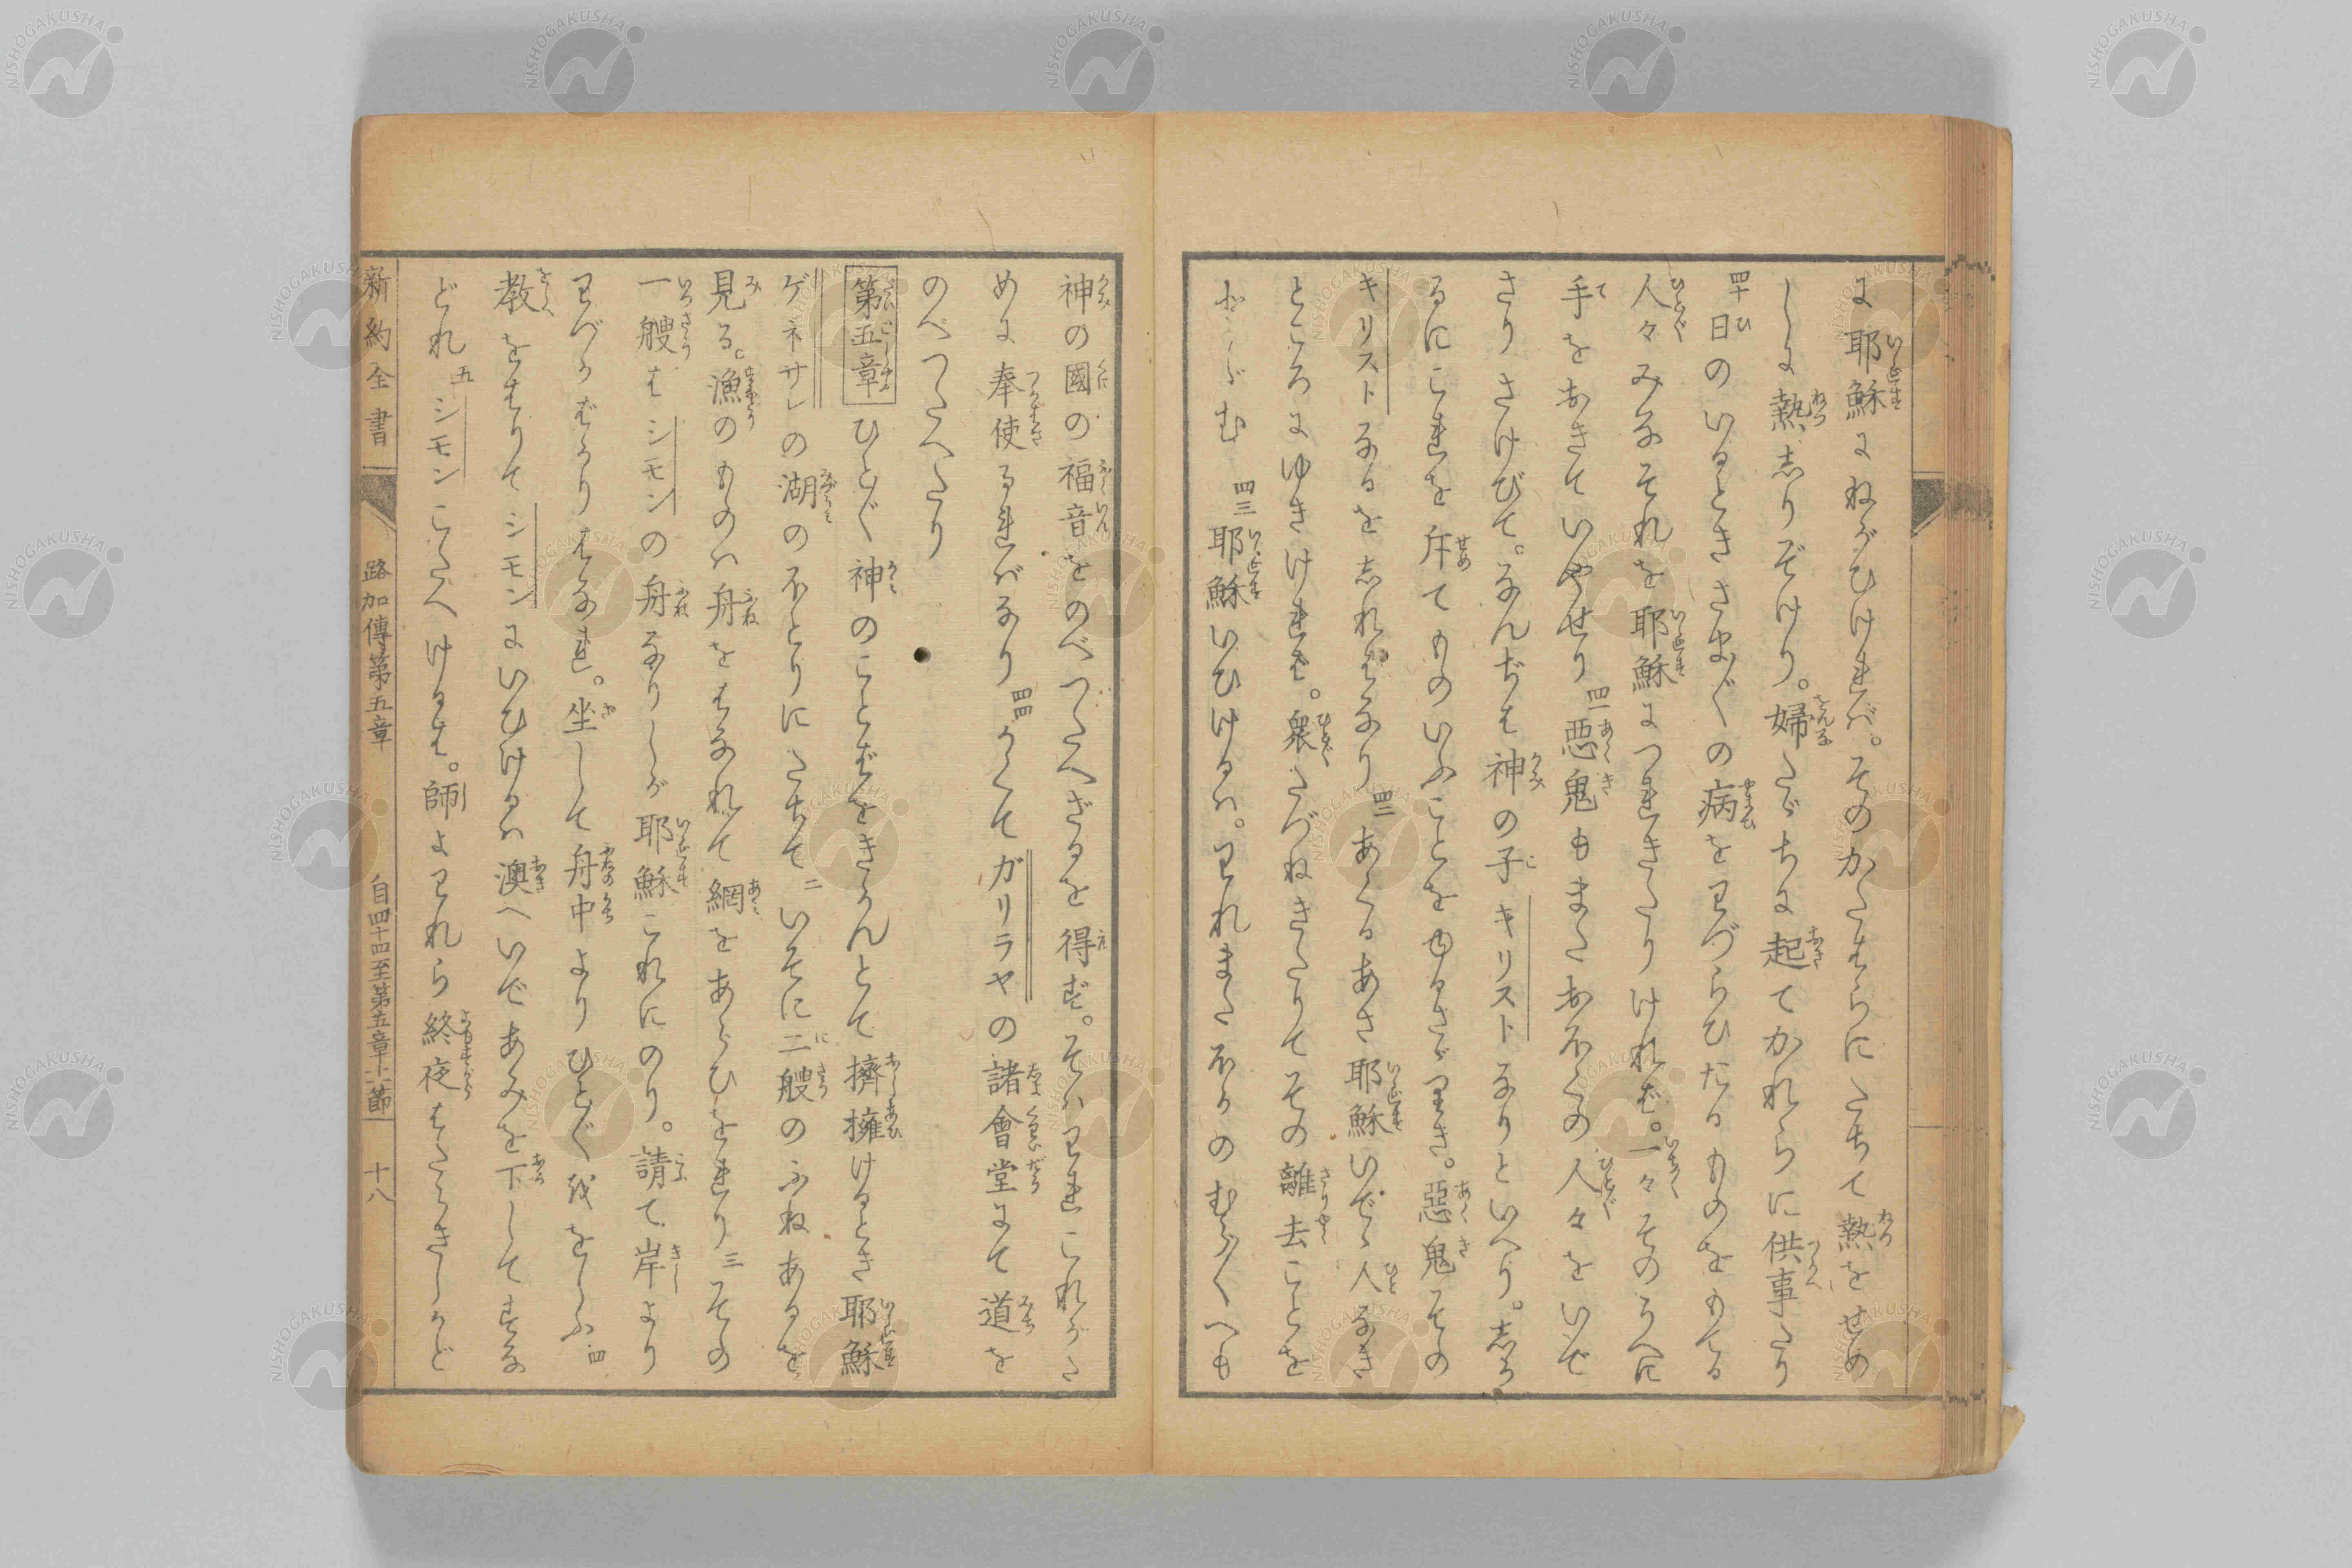 に耶穌にねがひければ。そのかたはらにたちて熱をせめ
しに熱しりぞけり。婦たゞちに起てかれらに供事たり
四十日のいるときさま〴〵の病をわづらひたるものをもてる
人々みなそれを耶穌につれきたりければ。一々そのうへに
手をおきていやせり四一惡鬼もまたおほくの人々をいで
さりさけびて。なんぢは神の子キリストなりといへり。しか
るにこれを斥てものいふことをゆるさゞりき。惡鬼その
キリストなるをしればなり四二あくるあさ耶穌いでゝ人なき
ところにゆきければ。衆たづねきたりてその離去ことを
とゞむ 四三耶穌いひけるハ。われまたほかのむら〳〵へも
神の國の福音をのべつたへざるを得ず。そハわれこれがた
めに奉使るればなり四四かくてガリラヤの諸會堂にて道を
のべつたへたり
第五章ひと〴〵神のことばをきかんとて擠擁けるとき耶穌
ゲネサレの湖のほとりにたちて二いそに二艘のふねあるを
見る。漁のものハ舟をはなれて網をあらひをれり三その
一艘はシモンの舟なりしが耶穌これにのり。請て岸より
わづかばかりはなれ。坐して舟中よりひと〴〵ををしふ四
教をはりてシモンにいひけるハ澳へいであみを下してすな
どれ五シモンこたへけるは。師よわれら終夜はたらきしかど
新約全書 路加傳第五章 自四十四至第五章十一節 十八
NISHOGAKUSHA